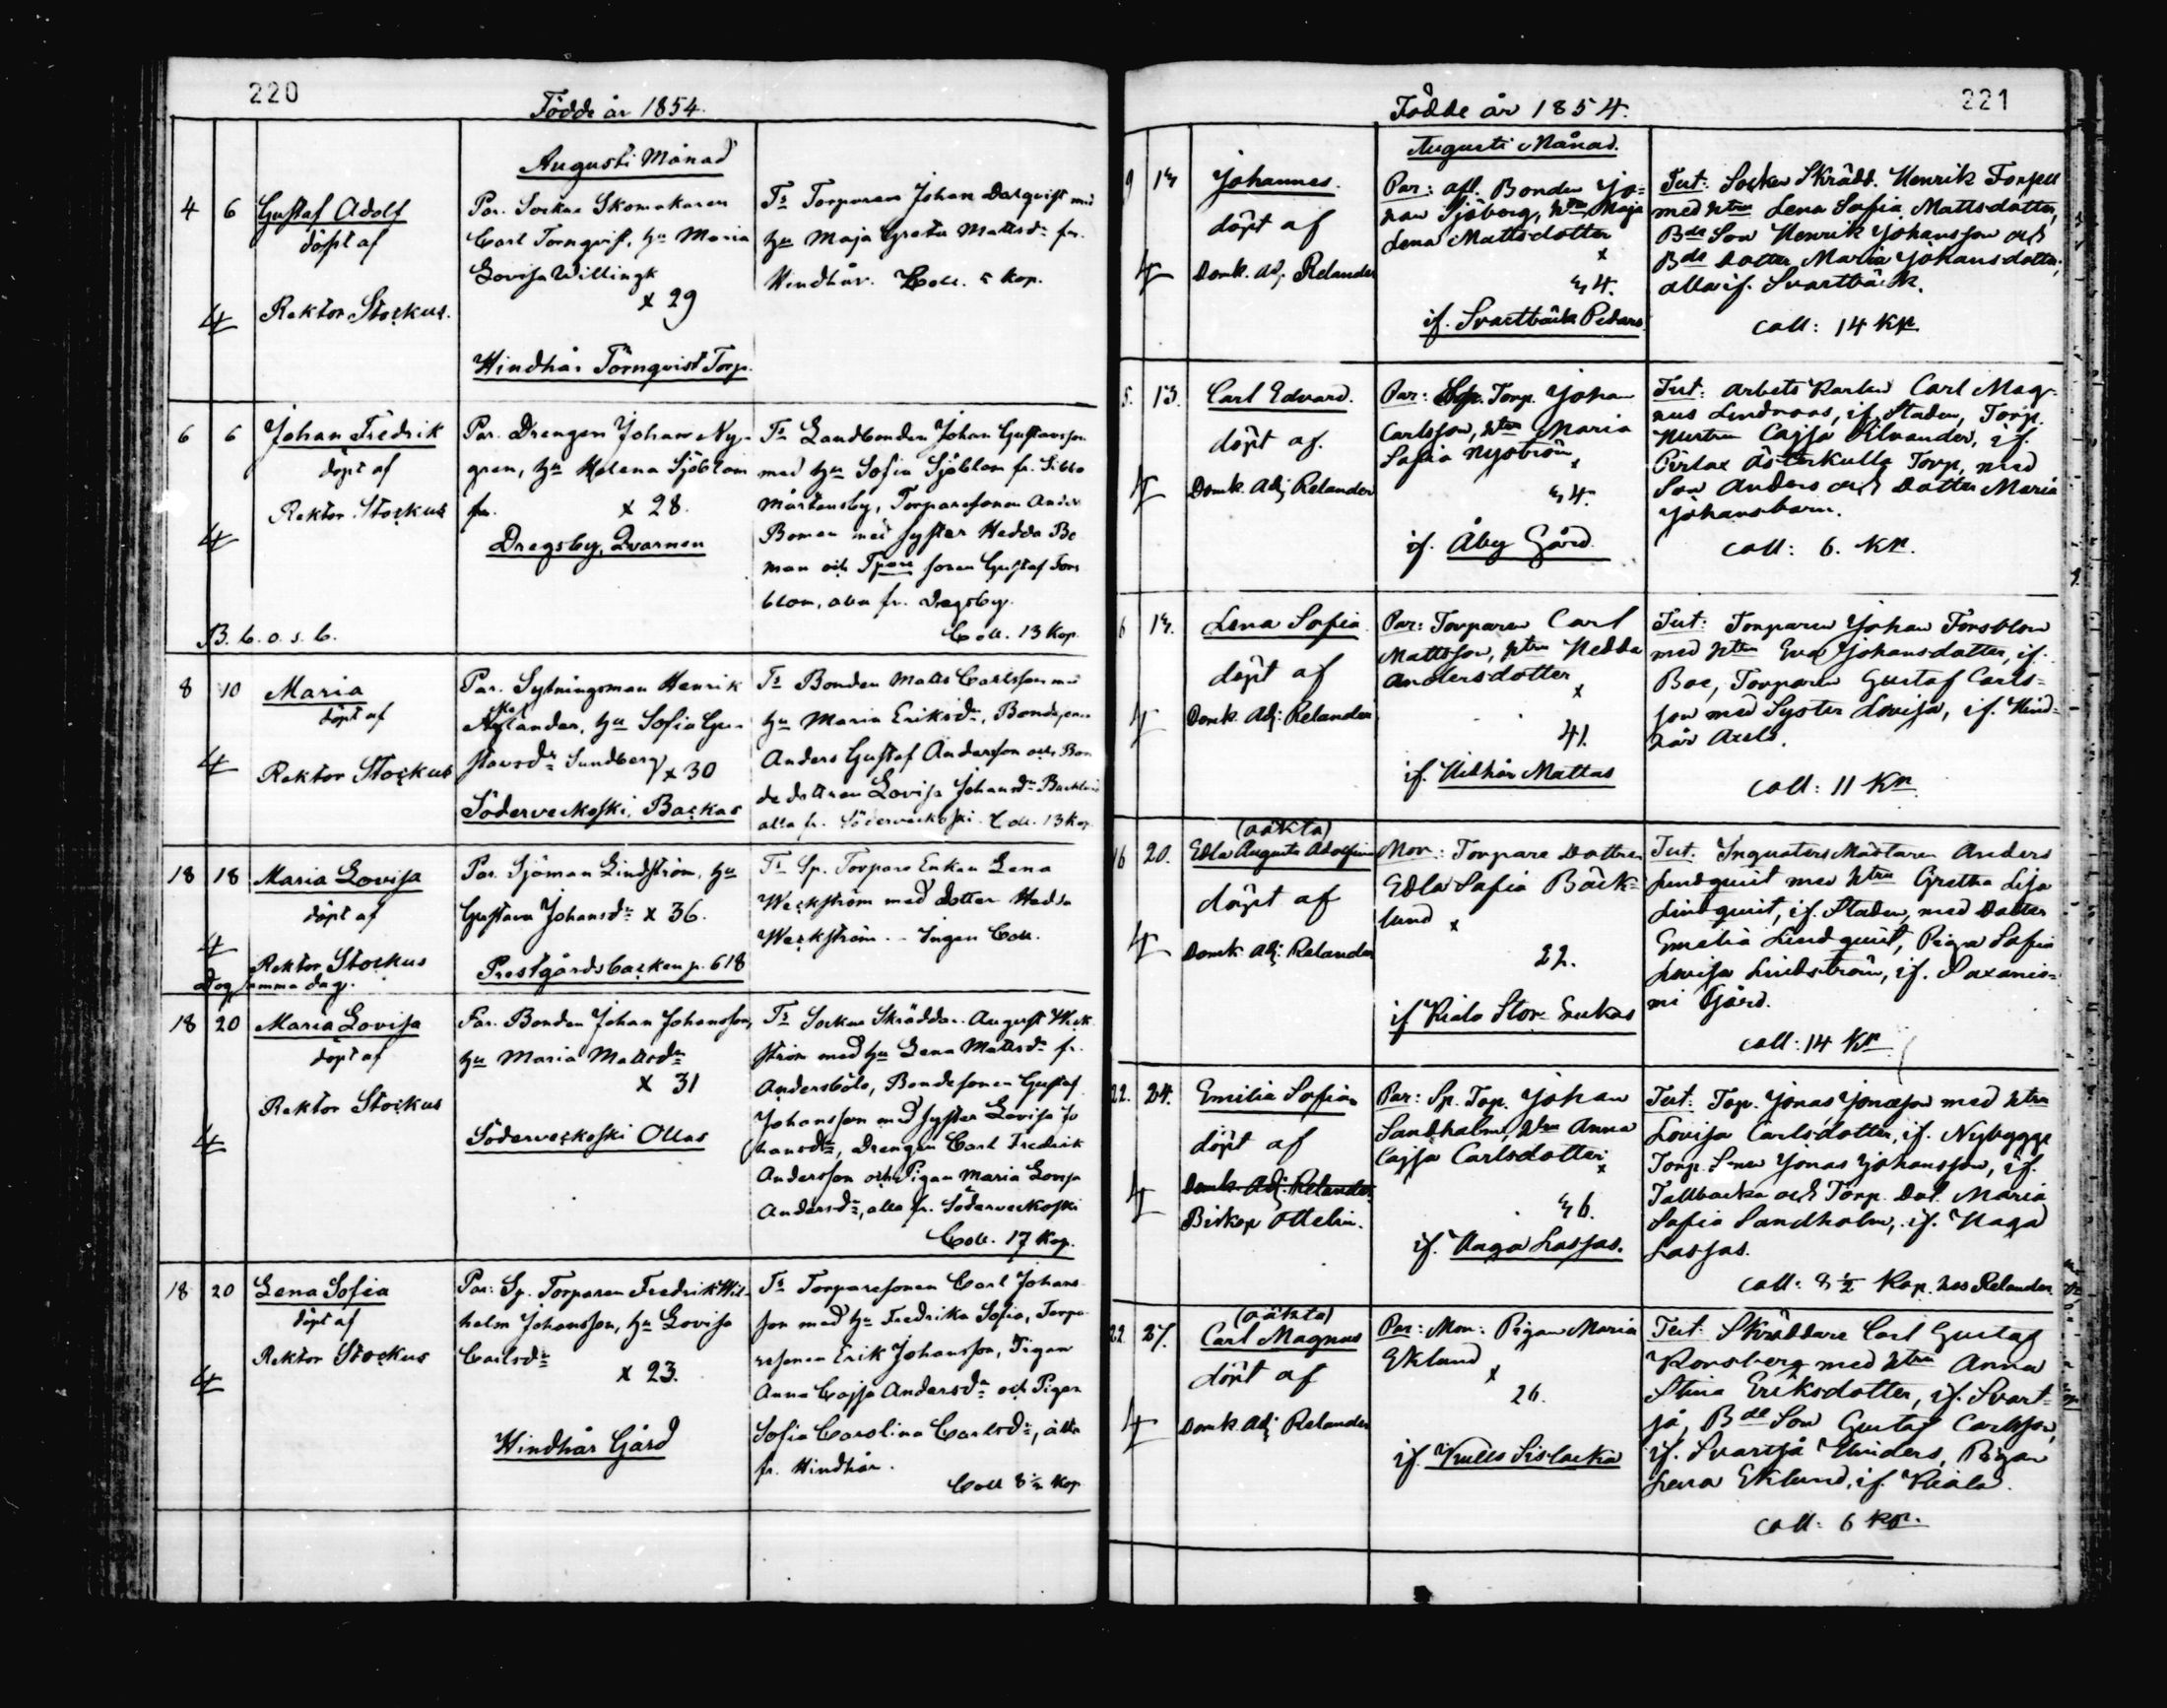 220
Födde år 1854.
Augusti Månad
4 6 Gustaf Adolf
döpt af
Rektor Stockus.
Par. Sockne Skomakaren
Carl Törnqvist, hu Maria
Lovisa Willingk
x 29
Hindhår Törnqvist Torp.
Ts Torparen Johan Dalqvist med
hu Maja Greta Mattsdr fr.
Hindhår. Coll. 5 Kop.
6 6 Johan Fredrik
döpt af
Rektor Stockus
B. b. o. s. b.
Par. Drengen Johan Ny-
gren, hu Helena Sjöblom
fr. x 28.
Dregsby, Qvarnen
Ts Landbonden Johan Gustavsson
med hu Sofia Sjöblom fr. Sibbo
Mårtensby, Torparesonen Anders
Boman med syster Hedda Bo
man och Tpare sonen Gustaf Fors
blom, alla fr. Dregsby.
Coll. 13 Kop.
8 10 Maria
döpt af
Rektor Stockus
Par. Sytningsman Henrik
hu Sofia Gu-
stavsdr Sundberg x 30
Söderveckoski, Backas
Ts Bonden Matts Carlsson med
hu Maria Eriksdr, Bondesonen
Anders Gustaf Andersson och Bon
de dottren Lovisa Johansdr
alla fr. Söderveckoski. Coll. 13 Kop.
18 18 Maria Lovisa
döpt af
Rektor Stockus
dog samma dag.
Par. Sjöman Lindström, hu
Gustava Johansdr x 36.
Prestgårdsbacken p. 618
Ts Sp. Torpare Enkan Lena
Weckström med dotter Hedda
Weckström. - Ingen Coll.
18 20 Maria Lovisa
döpt af
Rektor Stockus
Par. Bonden Johan Johansson,
hu Maria Mattsdr
x 31
Söderveckoski Ollas
Ts Sockne Skräddar. August Weck
ström med hu Lena Mattsdr fr.
Andersböle, Bondesonen Gustaf
Johansson med syster Lovisa Jo
hansdr, Drengen Carl Fredrik
Andersson och Pigan Maria Lovisa
Andersdr, alla fr. Söderveckoski
Coll. 17 Kop.
18 20 Lena Sofia
döpt af
Rektor Stockus
Par: Sp. Torparen Fredrik Wil-
helm Johansson, hu Lovisa
Carlsdr
x 23.
Hindhår Gård
Ts Torparesonen Carl Johans
son med hu Fredrika Sofia, Torpa
resonen Erik Johansson, Pigan
Anna Cajsa Andersdr och Pigan
Sofia Carolina Carlsdr, alla
fr. Hindhår.
Coll 8 1/2 Kop
221
Födde år 1854.
Augusti Månad.
Johannes.
döpt af
Domk. Adj. Relander
Par: afl. Bonden Jo=
han Sjöberg, htru Maja
Lena Mattsdotter
x
44.
if. Svartbäck Pedars
Test: Socken Skrädd. Henrik Forsell
med htru Lena Sofia Mattsdotter,
Bde Son Henrik Johansson och
Bde Dotter Maria Johansdotter,
alla if. Svartbäck.
Coll: 14 Kp.
5. 13. Carl Edvard.
döpt af.
Domk. Adj Relander
Par: Sp. Torp. Johan
Carlsson, htru Maria
Sofia Nyström
x
44.
if. Åby Gård.
Test: Arbets Karlen Carl Mag-
nus Lindroos, if Staden, Torp.
Hustrun Cajsa Silvander, if.
Pirlax Österkulla Torp, med
Son Anders och Dotter Maria
Johansbarn.
Coll: 6. Kp.
Lena Sofia
döpt af
Domk. Adj: Relander
Par: Torparen Carl
Mattsson, htru Hedda
Andersdotter
x
41.
if. Hidhår Mattas
Test: Torparen Johan Forsblom
med htru Eva Johansdotter, if.
Boe, Torparen Gustaf Carls=
son med Syster Lovisa, if. Hind=
hår Axels.
Coll: 11 Kp.
(oäkta)
16 20. Edla Augusta Adolfina
döpt af
Domk. Adj: Relander
Mor: Torpare Dottren
Edla Sofia Bäck=
lund x
22.
if Kiala Stor-Enckas
Test. Anders
Lindquist med htru Gretha Lisa
Lindquist, if. Staden, med Dotter
Emelia Lindquist, Pigan Sofia
Lovisa Lindström, if. Saxanie=
mi Gård.
Coll: 14 Kp.
22. 24. Emilia Sofia
döpt af
Domk. Adj. Relander
Biskop Ottelin.
Par: Sp. Top. Johan
Sandholm, htru Anna
Cajsa Carlsdotter
x
46.
if. Haga Lassas.
Test: Top. Jonas Jonasson med htru
Lovisa Carlsdotter, if. Nybygge
Torp. Sonen Jonas Johansson, if.
Tallbacka och Torp. Dot. Maria
Sofia Sandholm, if. Haga
Lassas.
Coll: 8 1/2 Kop. hos Relander
(oäkta)
22. 27. Carl Magnus
döpt af
Domk. Adj Relander
Par: Mor: Pigan Maria
Eklund
x
26.
if. Kulls Sislacka
Test: Skräddare Carl Gustaf
Korsberg med htru Anna
Stina Eriksdotter, if. Svart=
så, Bde Son Gustaf Carlsson,
if. Svartså Unders, Pigan
Lena Eklund, if. Kiala.
Coll: 6 Kp.